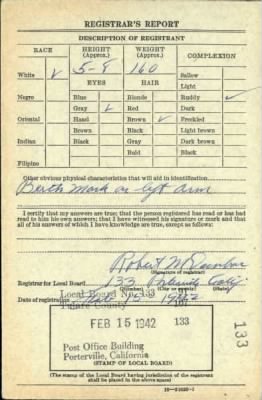 REGISTRAR'S REPORT
DESCRIPTION OF REGISTRANT
RACE HEIGHT (Approx.) WEIGHT (Approx.) COMPLEXION
White ✓ 5-8 160 Sallow
EYES HAIR Light
Negro Blue Blonde Ruddy ✓
Gray ✓ Red Dark
Oriental Hazel Brown ✓ Freckled
Brown Black Light brown
Indian Black Gray Dark brown
Bald Black
Filipino
Other obvious physical characteristics that will aid in identification
Birth mark on left arm
I certify that my answers are true; that the person registered has read or has had
read to him his own answers; that I have witnessed his signature or mark and that
all of his answers of which I have knowledge are true, except as follows:
Robert
(Signature of registrar)
Registrar for Local Board 133 Porterville Calif
(Number) (City or county)
Local Board No. 133
Date of registration Feb 15 1942
Tulare County
FEB 15 1942 133
133
Post Office Building
Porterville, California
(STAMP OF LOCAL BOARD)
(The stamp of the Local Board having jurisdiction of the registrant
shall be placed in the above space)